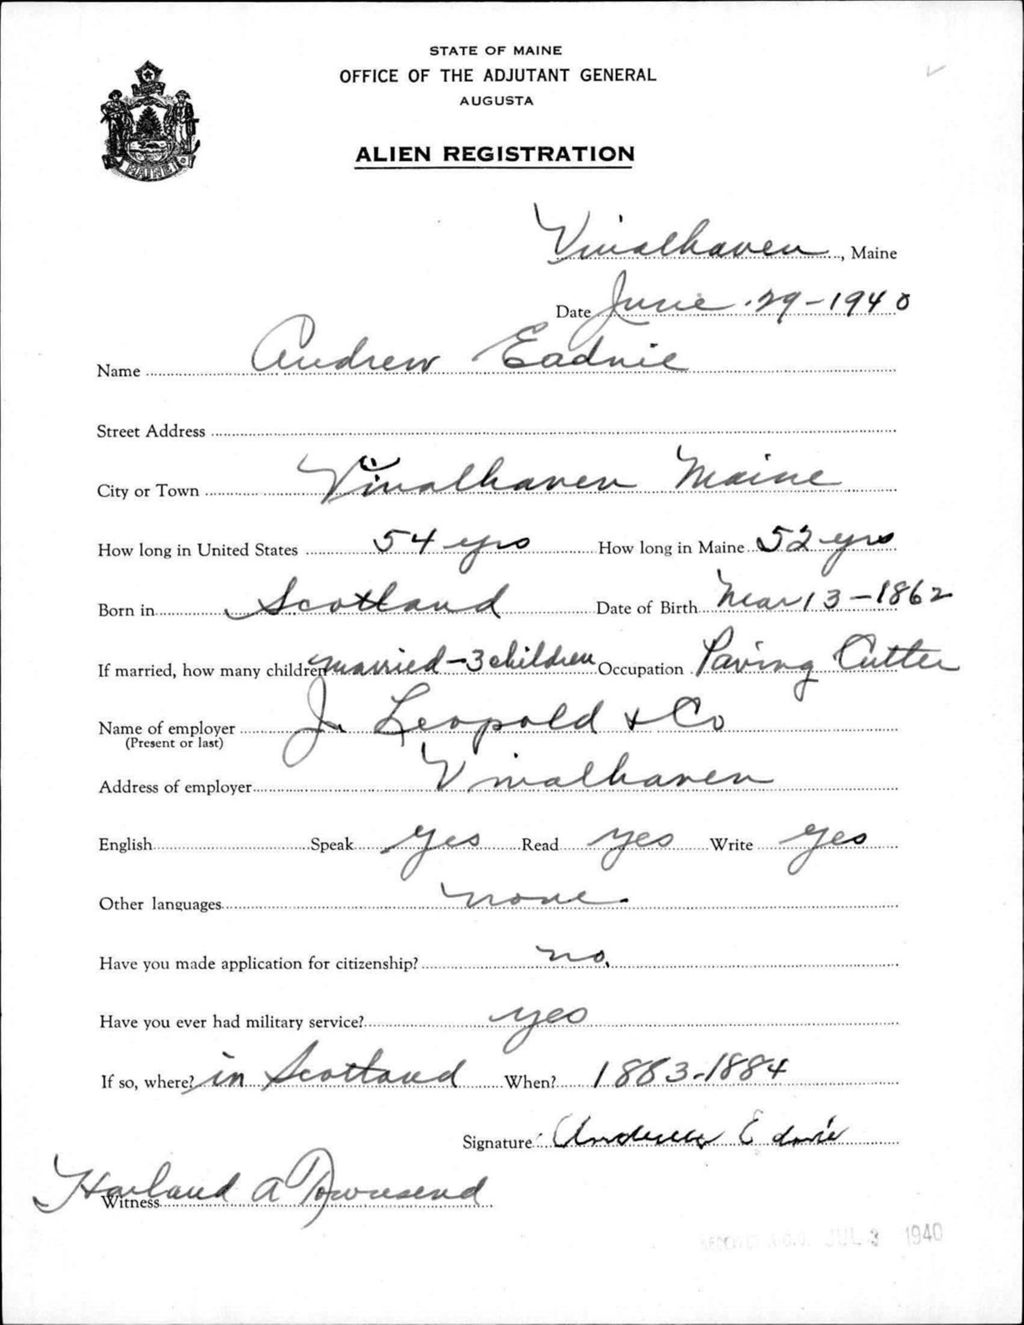 STATE OF MAINE
OFFICE OF THE ADJUTANT GENERAL
AUGUSTA
ALIEN REGISTRATION
MAINE
Vinalhaven, Maine
Date June 29-1940
Name Andrew Eadnie
Street Address
City or Town Vinalhaven Maine
How long in United States 54 yrs How long in Maine 52 yrs
Born in Scotland Date of Birth Mar 13-1862
If married, how many children married-3 children Occupation Paving Cutter
Name of employer J. Leopold & Co
(Present or last)
Address of employer Vinalhaven
English Speak yes Read yes Write yes
Other languages none.
Have you made application for citizenship? no.
Have you ever had military service? yes
If so, where? in Scotland When? 1883-1884
Signature
Harland A Townsend
Witness
JUL 3 1940